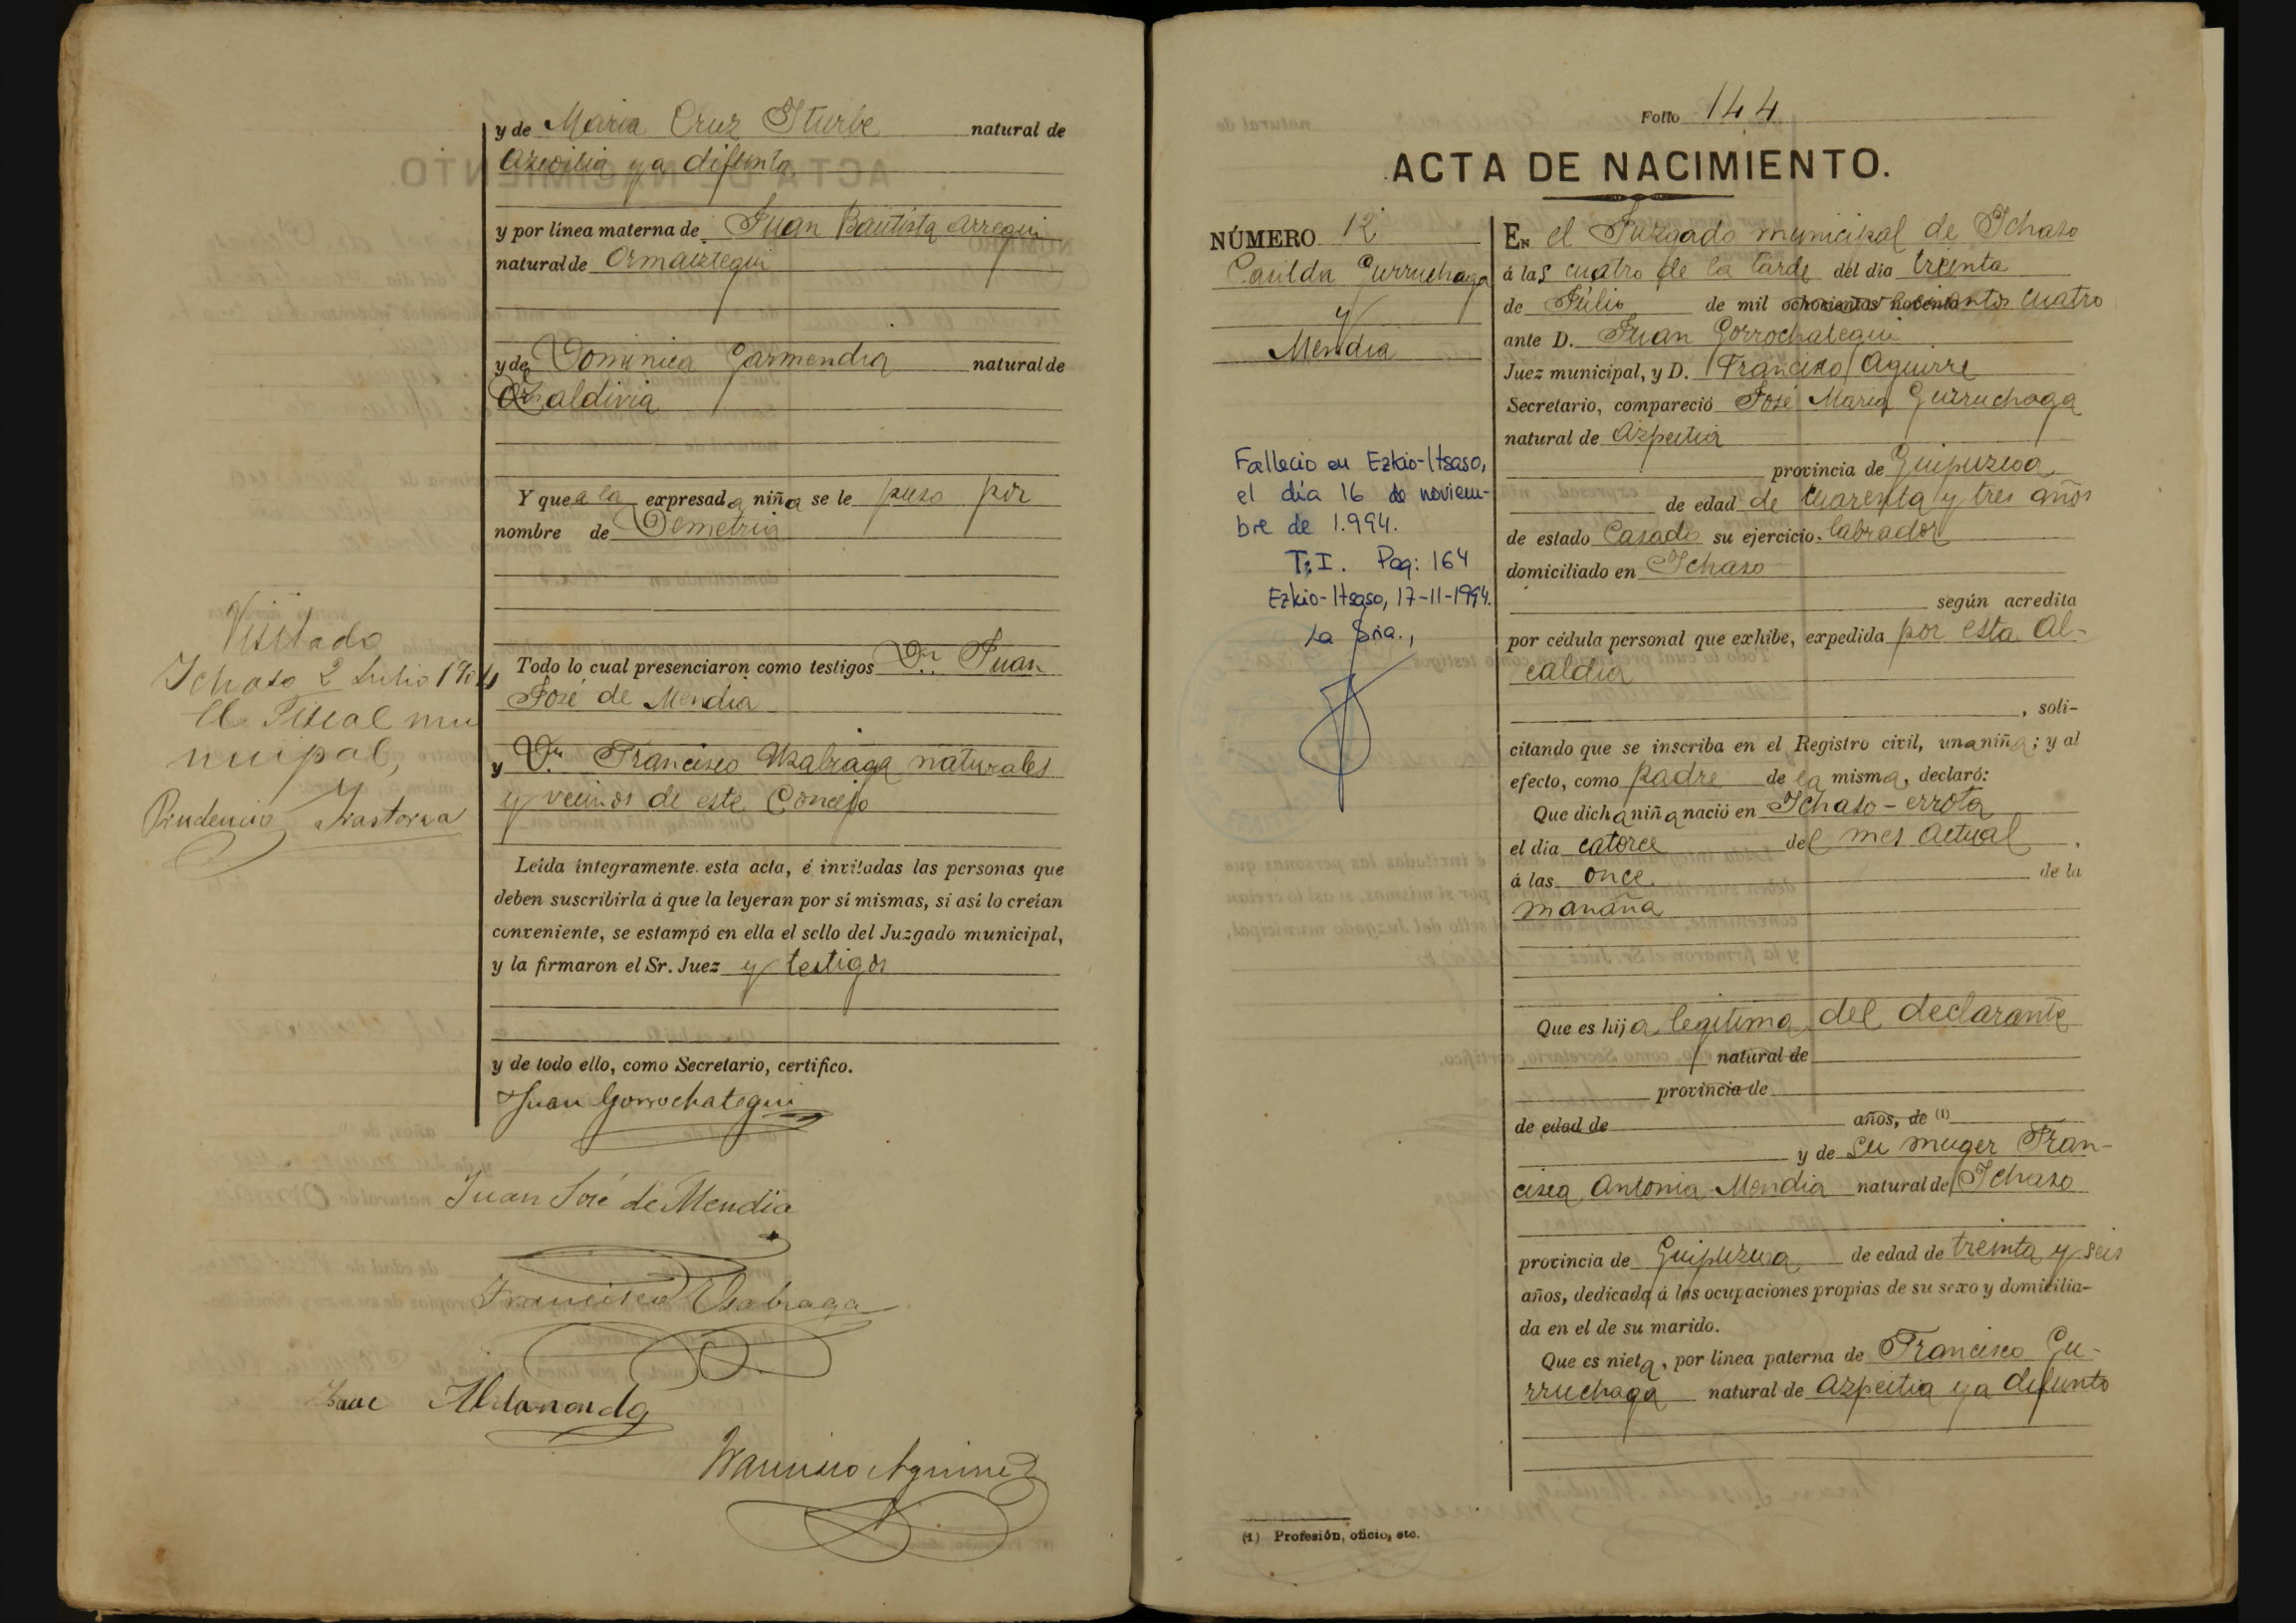 y de Maria Cruz Iturbe natural de
Azcoitia ya difunta
y por línea materna de Juan Bautista Arregui
natural de Ormaiztegui
y de Dominica Garmendia natural de
Zaldivia
Y que a la expresada niña se le puso por
nombre de Demetria
Visitado
Ichaso 2 Julio 1904
El Fiscal mu
nicipal,
Prudencio
Todo lo cual presenciaron como testigos Dn. Juan
José de Mendia
y Dn. Francisco Usabiaga naturales
y vecinos de este Concejo
Leída íntegramente esta acta, é invitadas las personas que
deben suscribirla á que la leyeran por sí mismas, si así lo creían
conveniente, se estampó en ella el sello del Juzgado municipal,
y la firmaron el Sr. Juez y testigos
y de todo ello, como Secretario, certifico.
Juan Gorrochategui
Juan José de Mendia
Francisco Usabiaga
Isaac
Francisco Aguirre
Folio 144
ACTA DE NACIMIENTO.
NÚMERO 12
Casilda Gurruchaga
y
Mendia
Fallecio en Ezkio-Itsaso,
el día 16 de noviem-
bre de 1.994.
T: I. Pag: 164
Ezkio-Itsaso, 17-11-1994.
La Sria.,
En el Juzgado municipal de Ichaso
á las cuatro de la tarde del dia treinta
de Julio de mil ochocientos noventa cuatro
ante D. Juan Gorrochategui
Juez municipal, y D. Francisco Aguirre
Secretario, compareció José Maria Gurruchaga
natural de Azpeitia
provincia de Guipuzcoa
de edad de cuarenta y tres años
de estado Casado su ejercicio labrador
domiciliado en Ichaso
según acredita
por cédula personal que exhibe, expedida por esta Al-
caldia
, soli-
citando que se inscriba en el Registro civil, una niña; y al
efecto, como padre de la misma, declaró:
Que dicha niña nació en Ichaso-errota
el dia catorce del mes actual,
á las once de la
mañana
Que es hija legitima del declarante
natural de
provincia de
de edad de años, de (1)
y de su muger Fran-
cisca Antonia Mendia natural de Ichaso
provincia de Guipuzcoa de edad de treinta y seis
años, dedicada á las ocupaciones propias de su sexo y domicilia-
da en el de su marido.
Que es nieta, por línea paterna de Francisco Gu-
rruchaga natural de Azpeitia ya difunto
(1) Profesión, oficio, etc.